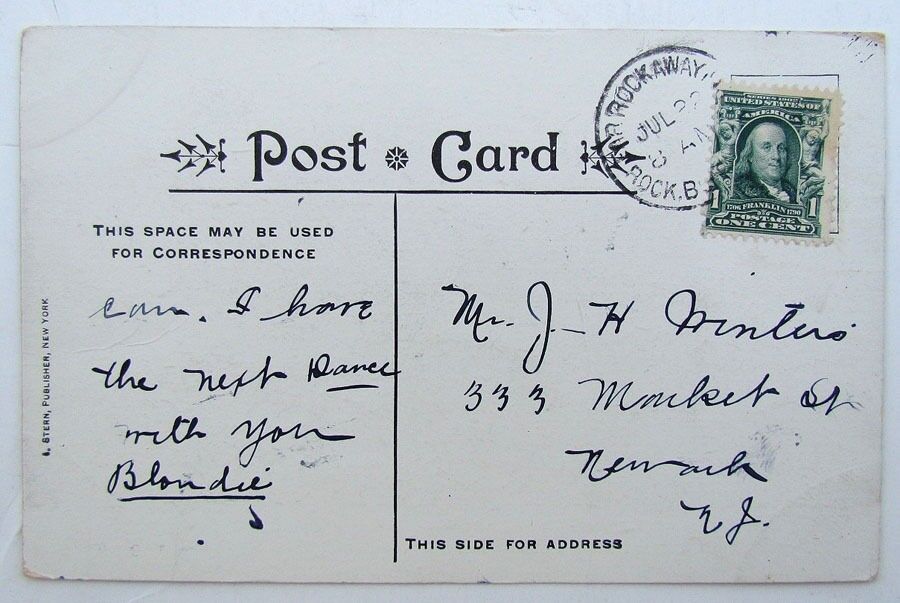 Post Card
FAR ROCKAWAY
JUL 22
8 A
ROCK. B
SERIES 1902
UNITED STATES OF
AMERICA
1 1
1706 FRANKLIN 1790
POSTAGE
ONE CENT
THIS SPACE MAY BE USED
FOR CORRESPONDENCE
can. I have
the next Dance
with you
Blondie
STERN, PUBLISHER, NEW YORK
Mr. J- H Winters
333 Market St
Newark
N J.
THIS SIDE FOR ADDRESS